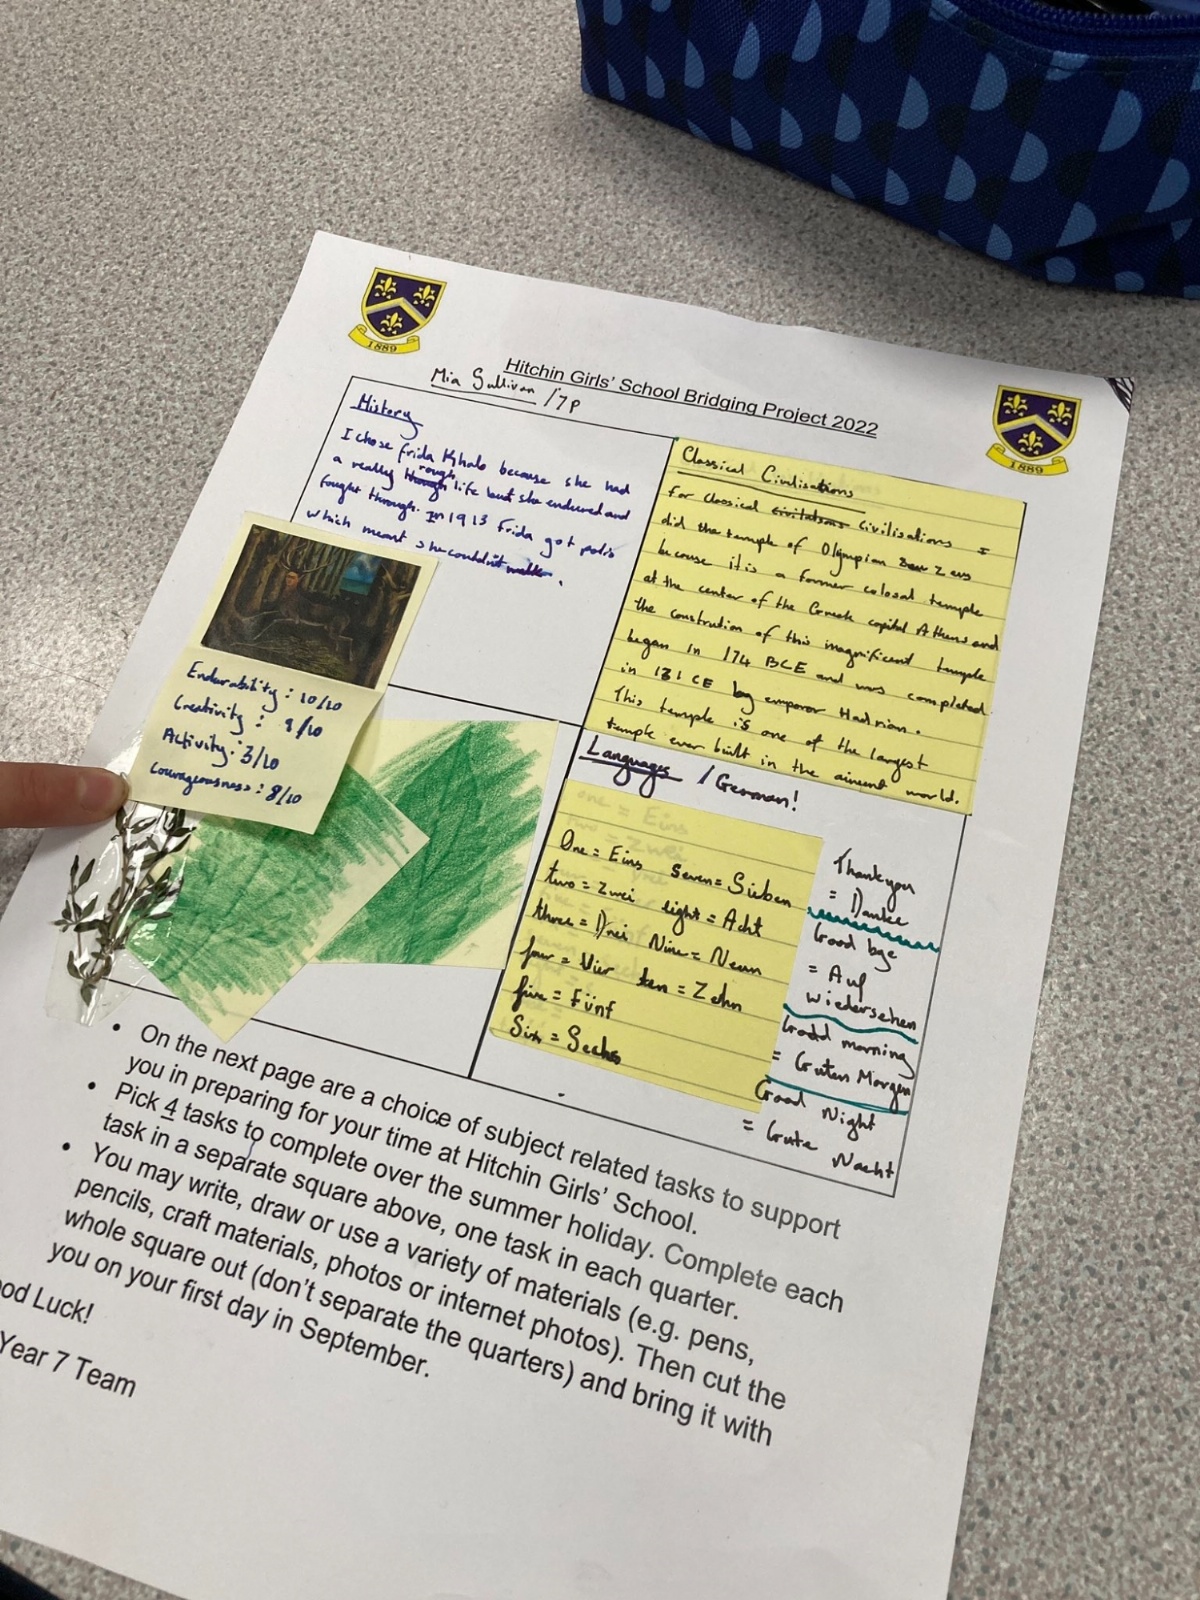 1889
Hitchin Girls' School Bridging Project 2022
Mia Sullivan /7P
1889
History
I chose frida Khalo because she had
a really though rough life but she endured and
fought through. In 1913 Frida got polio
which meant she couldn't walk.
Endurability : 10/10
Creativity : 9/10
Activity : 3/10
Courageousness : 8/10
Classical Civilisations
For classical civilatsons Civilisations I
did the temple of Olympian Zeus
because it is a former colosal temple
at the center of the Greek capital Athens and
the constrution of this magnificent temple
began in 174 BCE and was completed
in 131 CE by emporor Hadrian.
This temple is one of the largest
temple ever built in the aincent world.
Languages / German!
One = Eins seven = Sieben
two = Zwei eight = Acht
three = Drei Nine = Neun
four = Vier ten = Zehn
five = Fünf
Six = Sechs
Thankyou
= Danke
Good bye
= Auf
wiedersehen
Godd morning
= Guten Morgen
Good Night
= Gute
Nacht
• On the next page are a choice of subject related tasks to support
you in preparing for your time at Hitchin Girls' School.
• Pick 4 tasks to complete over the summer holiday. Complete each
task in a separate square above, one task in each quarter.
• You may write, draw or use a variety of materials (e.g. pens,
pencils, craft materials, photos or internet photos). Then cut the
whole square out (don't separate the quarters) and bring it with
you on your first day in September.
ood Luck!
Year 7 Team